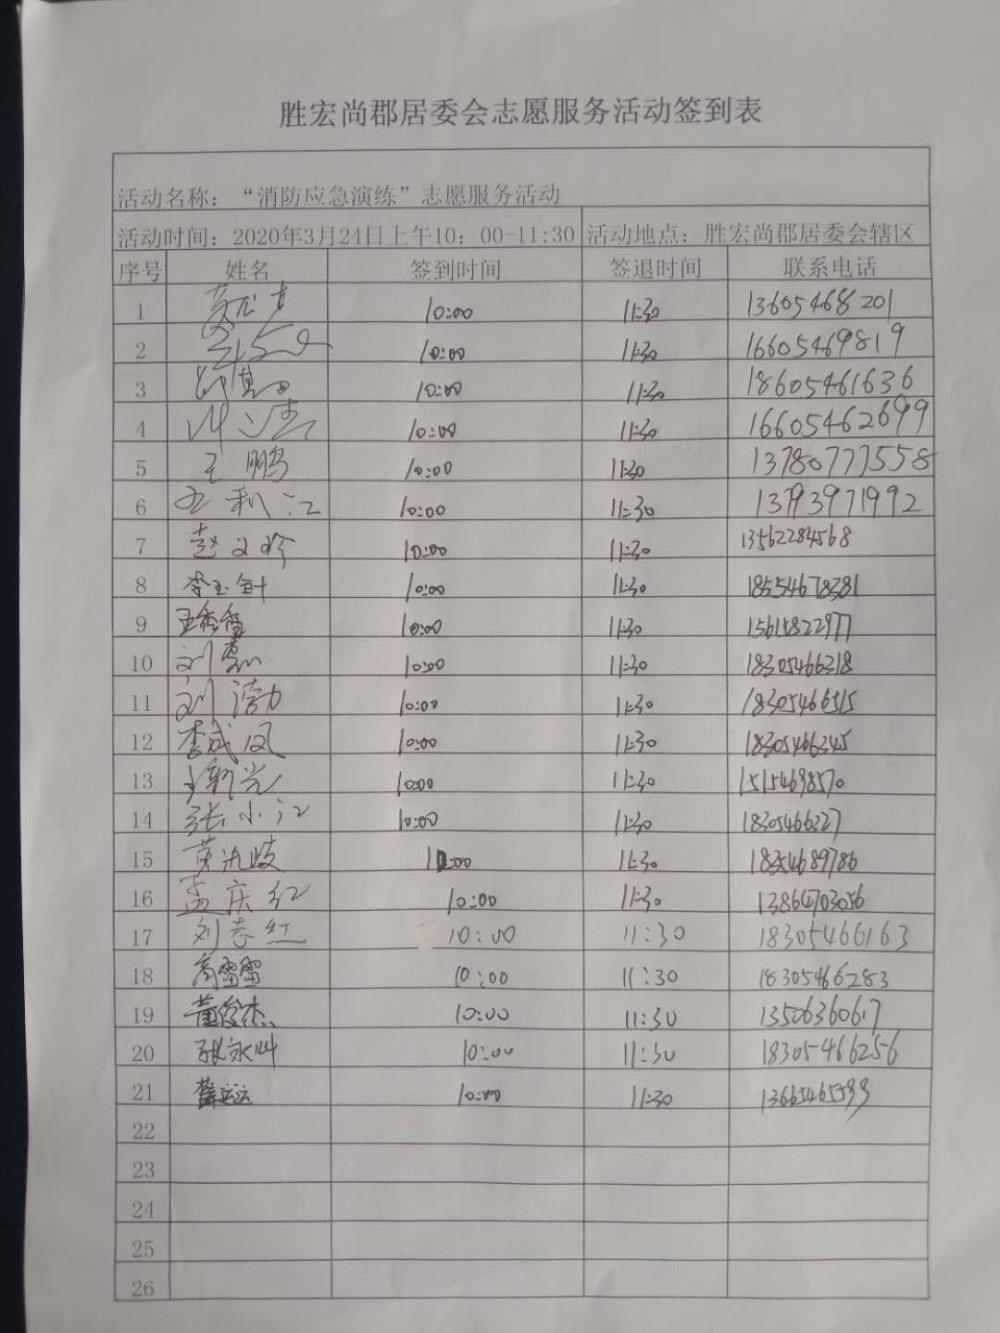 胜宏尚郡居委会志愿服务活动签到表
活动名称：“消防应急演练”志愿服务活动
活动时间：2020年3月24日上午10：00-11:30 活动地点：胜宏尚郡居委会辖区
序号 姓名 签到时间 签退时间 联系电话
1 10:00 11:30 13605468201
2 10:00 11:30 16605469819
3 10:00 11:30 18605461636
4 10:00 11:30 16605462699
5 王鹏 10:00 11:30 13780777558
6 利江 10:00 11:30 13793971992
7 赵文珍 10:00 11:30 13562284568
8 李玉 10:00 11:30 18554678381
9 王秀香 10:00 11:30 15615822977
10 刘 10:00 11:30 18305466318
11 刘涛 10:00 11:30 18305466515
12 李成凤 10:00 11:30 18305466345
13 王新光 10:00 11:30 15154698570
14 张小江 10:00 11:30 18305466327
15 黄 10:00 11:30 18354689786
16 孟庆红 10:00 11:30 13864703056
17 刘志红 10:00 11:30 18305466163
18 高雷雷 10:00 11:30 18305466283
19 董俊杰 10:00 11:30 13506360617
20 张永叫 10:00 11:30 18305466256
21 10:00 11:30 13665465599
22
23
24
25
26